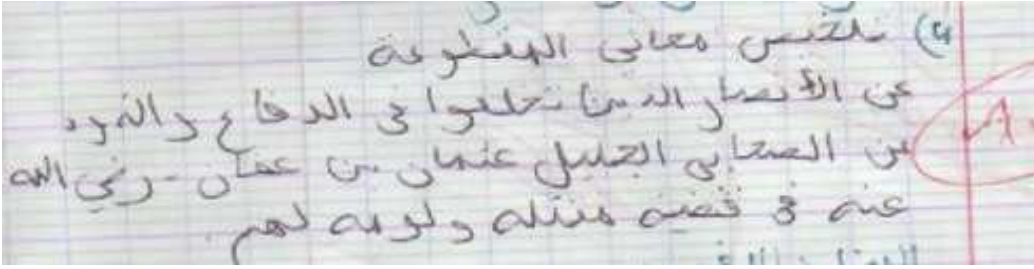 4) تلخيص معاني المقطوعة
عن الأنصار الذين تخلفوا في الدفاع والذود
عن الصحابي الجليل عثمان بن عفان - رضي الله
عنه في قضية مقتله ولومه لهم.
A